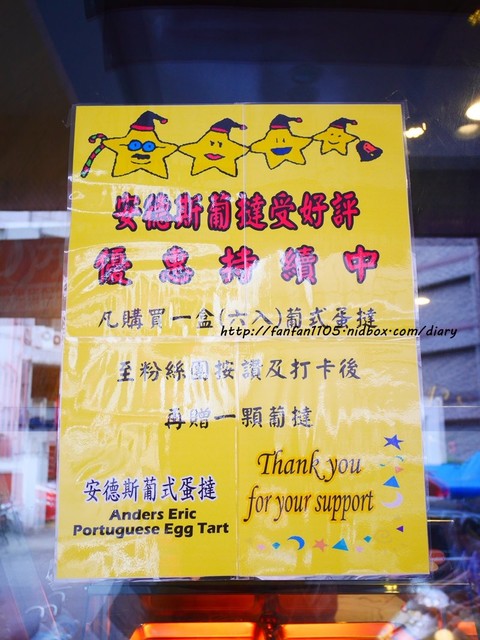 安德斯葡撻受好評
優惠持續中
凡購買一盒(六入)葡式蛋撻
http://fanfan1105.nidbox.com/diary
至粉絲團按讚及打卡後
再贈一顆葡撻
Thank you
for your support
安德斯葡式蛋撻
Anders Eric
Portuguese Egg Tart